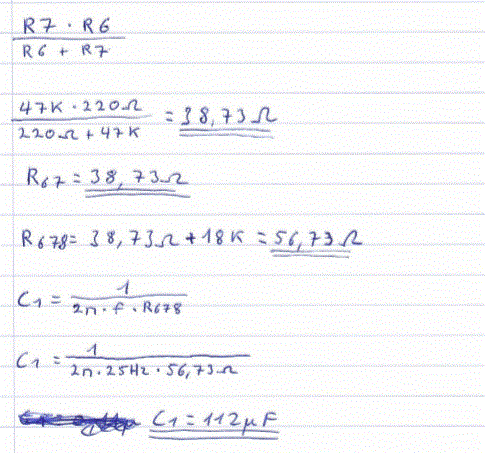 R7 · R6
R6 + R7
47K · 220Ω
220Ω + 47K
= 38,73Ω
R67 = 38,73Ω
R678 = 38,73Ω + 18K = 56,73Ω
C1 = 1
2π · f · R678
C1 = 1
2π · 25Hz · 56,73Ω
C1 = 112µF